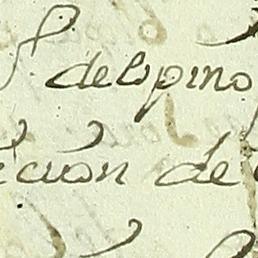 delspino
ecion de